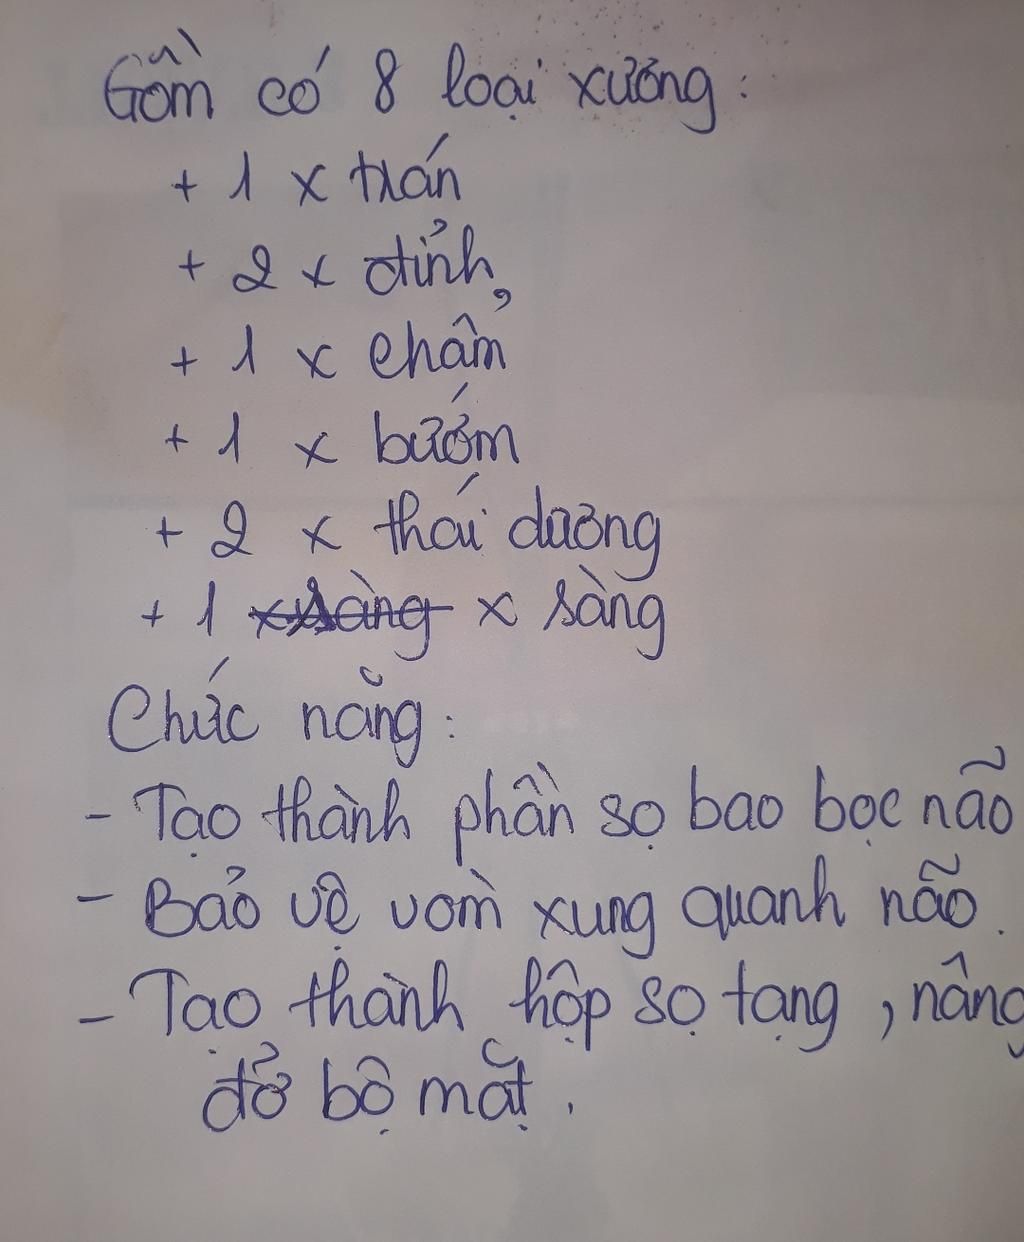 Gồm có 8 loại xương:
+ 1 x trán
+ 2 x đỉnh
+ 1 x chẩm
+ 1 x bướm
+ 2 x thái dương
+ 1 x sàng x sàng
Chức năng:
- Tạo thành phần sọ bao bọc não
- Bảo vệ vòm xung quanh não.
- Tạo thành hộp sọ tạng, nâng
đở bộ mặt.